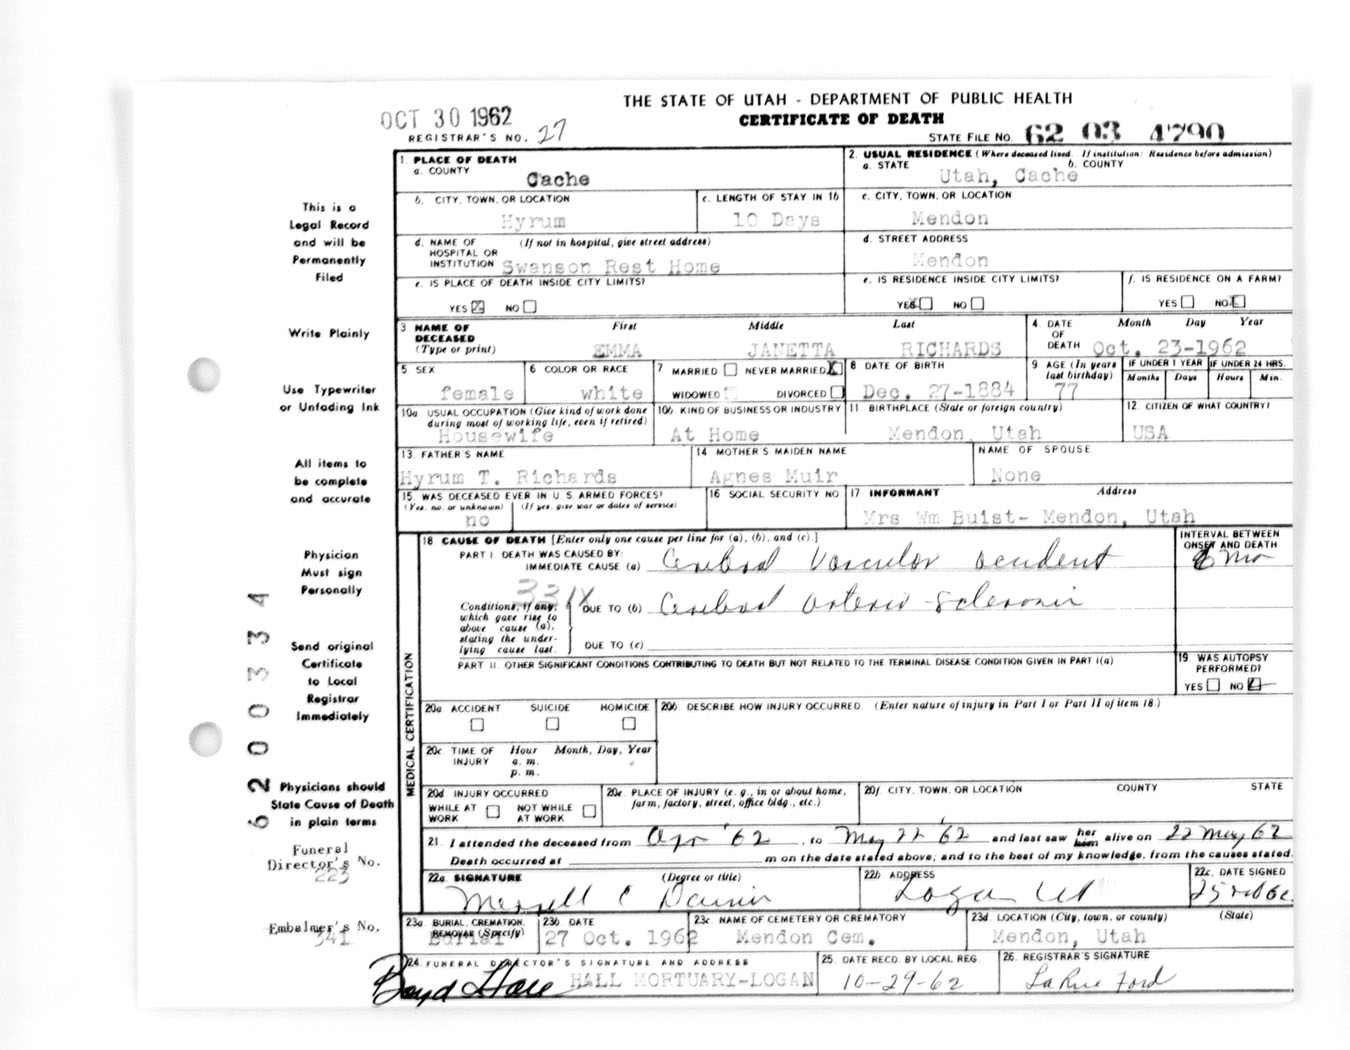 THE STATE OF UTAH - DEPARTMENT OF PUBLIC HEALTH
CERTIFICATE OF DEATH
OCT 30 1962
REGISTRAR'S NO. 27
STATE FILE NO. 62 03 4790
This is a
Legal Record
and will be
Permanently
Filed
Write Plainly
Use Typewriter
or Unfading Ink
All items to
be complete
and accurate
Physician
Must sign
Personally
Send original
Certificate
to Local
Registrar
Immediately
Physicians should
State Cause of Death
in plain terms
Funeral
Director's No.
223
Embalmer's No.
341
6200334
1. PLACE OF DEATH
a. COUNTY
Cache
2. USUAL RESIDENCE (Where deceased lived. If institution: Residence before admission)
a. STATE b. COUNTY
Utah, Cache
b. CITY, TOWN, OR LOCATION
Hyrum
c. LENGTH OF STAY IN 1b
10 Days
c. CITY, TOWN, OR LOCATION
Mendon
d. NAME OF (If not in hospital, give street address)
HOSPITAL OR
INSTITUTION Swanson Rest Home
d. STREET ADDRESS
Mendon
e. IS PLACE OF DEATH INSIDE CITY LIMITS?
YES NO
e. IS RESIDENCE INSIDE CITY LIMITS?
YES NO
f. IS RESIDENCE ON A FARM?
YES NO
3 NAME OF First Middle Last
DECEASED
(Type or print) EMMA JANETTA RICHARDS
4. DATE Month Day Year
OF
DEATH Oct. 23-1962
5 SEX
female
6 COLOR OR RACE
white
7 MARRIED NEVER MARRIED X
WIDOWED DIVORCED
8 DATE OF BIRTH
Dec. 27-1884
9 AGE (In years IF UNDER 1 YEAR IF UNDER 24 HRS.
last birthday) Months Days Hours Min.
77
10a USUAL OCCUPATION (Give kind of work done
during most of working life, even if retired)
Housewife
10b KIND OF BUSINESS OR INDUSTRY
At Home
11 BIRTHPLACE (State or foreign country)
Mendon, Utah
12 CITIZEN OF WHAT COUNTRY?
USA
13. FATHER'S NAME
Hyrum T. Richards
14 MOTHER'S MAIDEN NAME
Agnes Muir
NAME OF SPOUSE
None
15. WAS DECEASED EVER IN U.S. ARMED FORCES?
(Yes, no, or unknown) (If yes, give war or dates of service)
no
16 SOCIAL SECURITY NO.
17 INFORMANT Address
Mrs Wm Buist- Mendon, Utah
MEDICAL CERTIFICATION
18 CAUSE OF DEATH [Enter only one cause per line for (a), (b), and (c).]
INTERVAL BETWEEN
ONSET AND DEATH
PART I. DEATH WAS CAUSED BY:
IMMEDIATE CAUSE (a) Cerebral Vascular accident 6 mo
331X
Conditions, if any,
which gave rise to
above cause (a),
stating the under-
lying cause last.
DUE TO (b) Cerebral arterio-sclerosis
DUE TO (c)
PART II. OTHER SIGNIFICANT CONDITIONS CONTRIBUTING TO DEATH BUT NOT RELATED TO THE TERMINAL DISEASE CONDITION GIVEN IN PART I(a)
19. WAS AUTOPSY
PERFORMED?
YES NO
20a. ACCIDENT SUICIDE HOMICIDE
20b. DESCRIBE HOW INJURY OCCURRED. (Enter nature of injury in Part I or Part II of item 18.)
20c TIME OF Hour Month, Day, Year
INJURY a. m.
p. m.
20d. INJURY OCCURRED
WHILE AT NOT WHILE
WORK AT WORK
20e. PLACE OF INJURY (e. g., in or about home,
farm, factory, street, office bldg., etc.)
20f. CITY, TOWN, OR LOCATION COUNTY STATE
21. I attended the deceased from Apr '62, to May 22 '62 and last saw her him alive on 22 May 62
Death occurred at m on the date stated above; and to the best of my knowledge, from the causes stated.
22a. SIGNATURE (Degree or title)
Merrell C
22b ADDRESS
Logan Ut
22c. DATE SIGNED
23a BURIAL, CREMATION,
REMOVAL (Specify)
Burial
23b DATE
27 Oct. 1962
23c. NAME OF CEMETERY OR CREMATORY
Mendon Cem.
23d. LOCATION (City, town, or county) (State)
Mendon, Utah
24. FUNERAL DIRECTOR'S SIGNATURE AND ADDRESS
Boyd HALL MORTUARY-LOGAN
25. DATE RECD. BY LOCAL REG.
10-29-62
26. REGISTRAR'S SIGNATURE
LaRue Ford